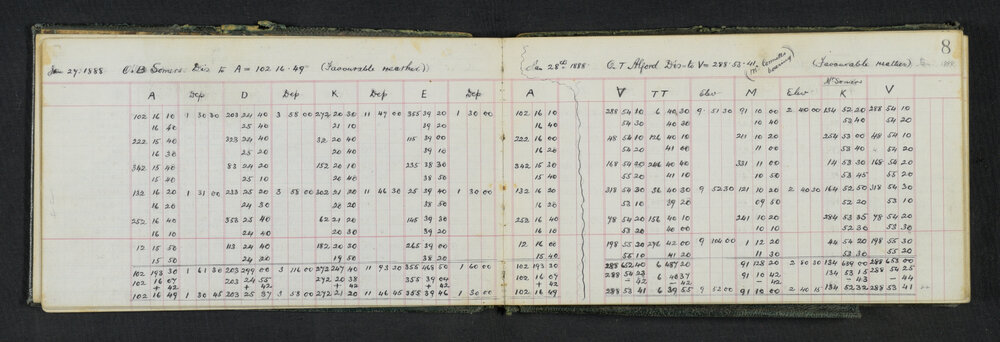 Jan 27. 1888 O. B Somers. Dis to A = 102 16 . 49" (Favourable weather)
A Dep D Dep K Dep E Dep
102 16 10 1 30 30 203 24 40 3 58 00 272 20 30 11 47 00 355 39 20 1 30 00
16 40 25 40 21 10 39 20
222 15 40 323 24 40 32 20 40 115 39 00
16 30 25 20 20 40 39 10
342 15 40 83 24 20 152 20 10 235 38 30
15 40 25 10 20 40 38 50
132 16 20 1 31 00 233 25 20 3 58 00 302 21 20 11 46 30 25 39 40 1 30 00
16 20 24 30 20 20 38 50
252 16 40 353 25 40 62 21 20 145 39 30
16 10 24 40 20 30 39 20
12 15 50 113 24 40 182 20 20 265 39 00
15 50 24 20 19 50 38 20
102 193 30 1 61 30 203 299 00 3 116 00 272 247 40 11 93 30 355 468 50 1 60 00
102 16 07 203 24 55 272 20 38 355 39 04
+ 42 + 42 + 42 + 42
102 16 49 1 30 45 203 25 37 3 58 00 272 21 20 11 46 45 355 39 46 1 30 00
8
Jan 28th 1888 C. T. Alford Dis to V = 288 . 53 . 41. (Favourable weather)
Mr Somers
A V TT Elev M Elev K V
102 16 10 288 54 10 6 40 30 9 51 30 91 10 00 2 40 00 134 52 20 288 54 10
16 40 54 30 40 30 10 40 53 40 54 20
222 16 00 48 54 10 126 40 10 211 10 20 254 53 00 48 54 10
16 20 54 20 41 00 11 00 53 40 54 20
342 15 30 168 54 20 246 40 40 331 11 00 14 53 30 168 54 20
15 40 55 20 41 10 10 50 53 45 55 20
132 16 20 318 54 30 36 40 30 9 52 30 121 10 20 2 40 30 164 52 50 318 54 30
16 20 53 10 39 20 09 50 52 20 53 10
252 16 40 78 54 20 156 40 10 241 10 20 284 53 35 78 54 20
16 10 53 20 40 00 10 10 52 30 53 30
12 16 00 198 55 30 276 42 00 9 104 00 1 12 20 44 54 20 198 55 30
15 40 55 10 41 20 11 30 53 30 55 20
102 193 30 288 652 40 6 487 20 91 128 20 2 80 30 134 639 00 288 653 00
102 16 07 288 54 23 6 40 37 91 10 42 134 53 15 288 54 25
+ 42 - 42 - 42 - 42 - 43 - 44
102 16 49 288 53 41 6 39 55 9 52 00 91 10 00 2 40 15 134 52 32 288 53 41